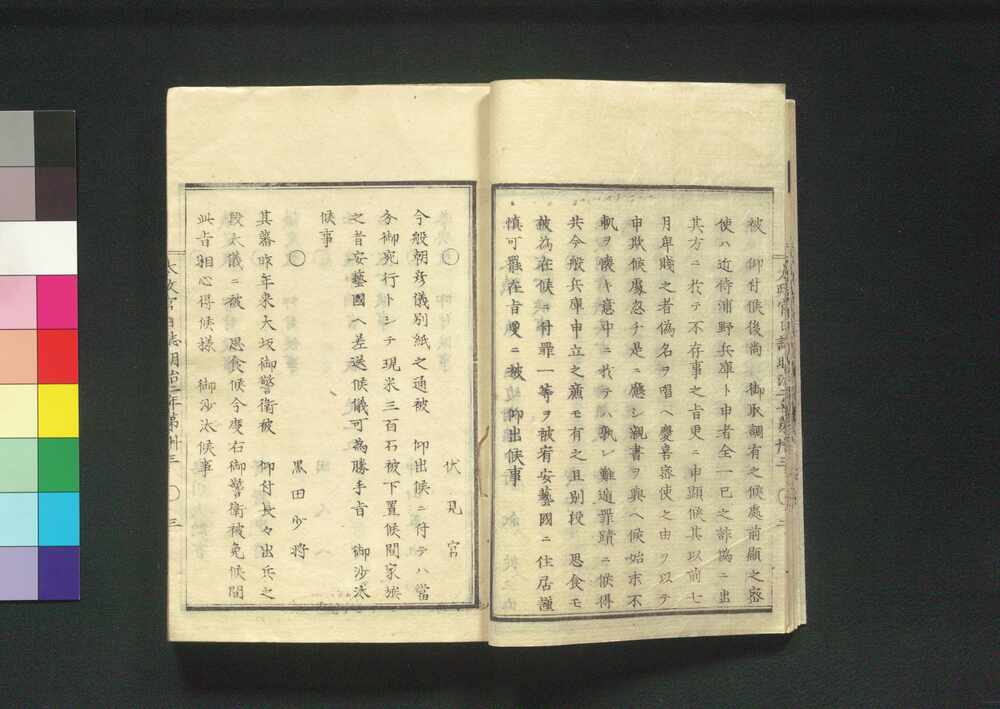 被 仰付候後尚 御取調有之候處前顯之密
使ハ近侍浦野兵庫ト申者全一已之詐偽ニ出
其方ニ於テ不存事之旨更ニ申顯候其以前七
月卑賤之者偽名ヲ唱ヘ慶喜密使之由ヲ以テ
申欺候處忽チ是ニ應シ親書ヲ與ヘ候始末不
軌ヲ懐キ意中ニ於テハ孰レ難遁罪蹟ニ候得
共今般兵庫申立之廉モ有之且別段 思食モ
被為在候ニ付罪一等ヲ被宥安藝國ニ住居謹
慎可罷在旨更ニ被 仰出候事
伏見宮
今般朝彦儀別紙之通被 仰出候ニ付テハ當
分御宛行トシテ現米三百石被下置候間家族
之者安藝國ヘ差送候儀可為勝手旨 御沙汰
候事
黒田少将
其藩昨年来大坂御警衛被 仰付長々出兵之
段大儀ニ被 思食候今度右御警衛被免候間
此旨相心得候様 御沙汰候事
太政官日誌明治二年第卅三 〇 三